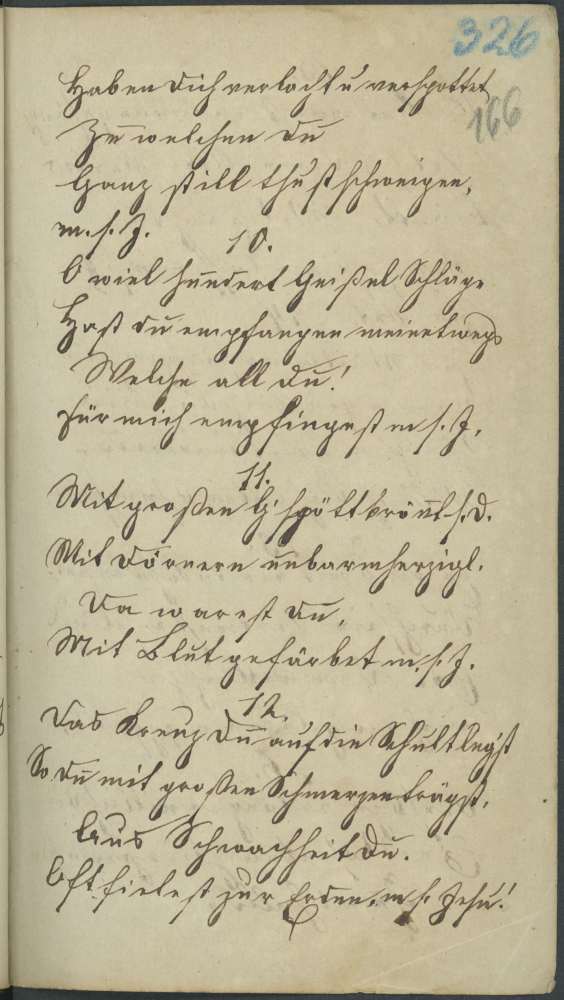 326
166
Haben dich verlacht u verspottet
Zu welchen du
Ganz still thust schweigen,
m. s. J.
10.
O wiel hundert Geißel Schläge
Hast du empfangen meinetwegs
Welche all du!
Für mich empfingest m s. J.
11.
Mit großen G'spött krönt s. d.
Mit Dörnern unbarmherzigl.
Da warest du,
Mit Blut gefärbet m. s. J.
12.
Das Kreuz du auf die Schult legst
So du mit großen Schmerzen trägst,
Aus Schwachheit du.
Oft fielest zur Erden, m s. Jesu!